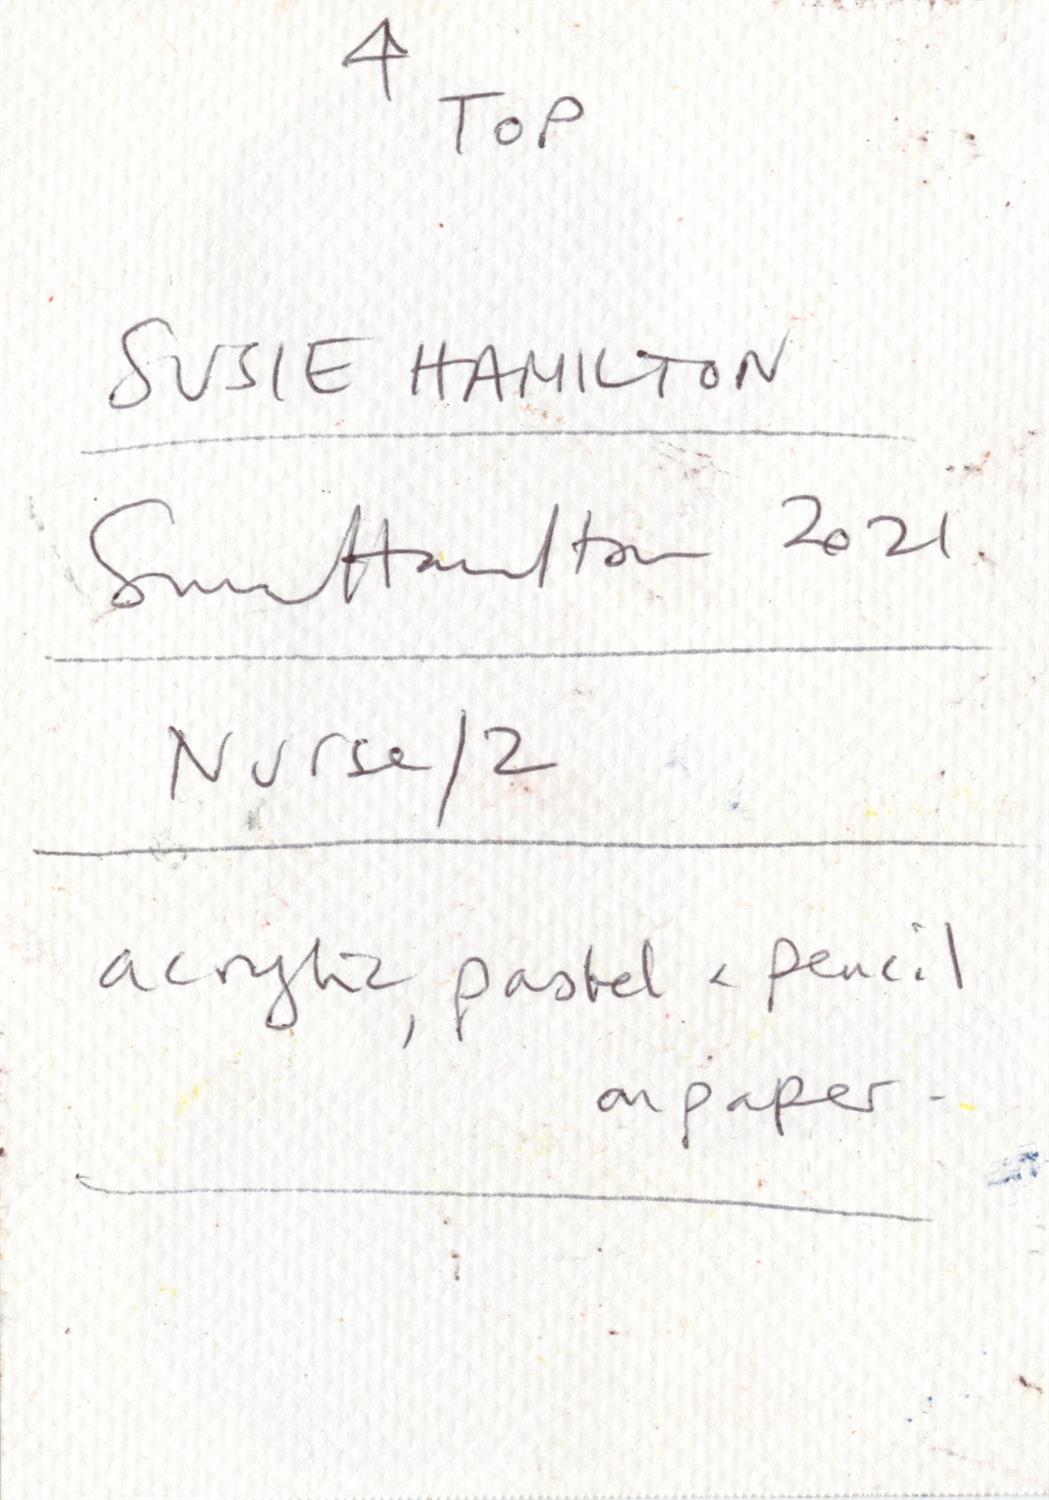 TOP
SUSIE HAMILTON
Susie Hamilton 2021.
Nurse/2
acrylic, pastel & pencil
on paper.